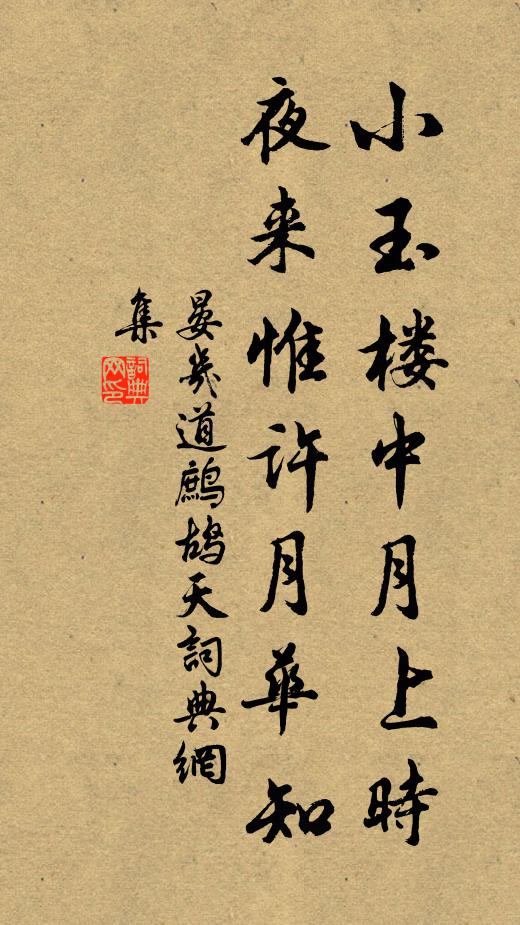 小玉楼中月上時
夜来惟许月華知
晏幾道鷓鴣天詞典網
集
詞典网印